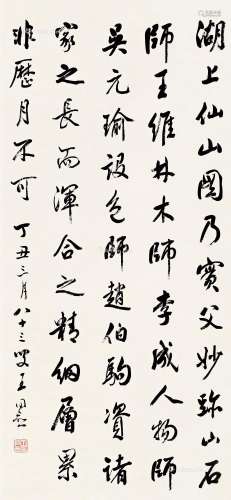 湖上仙山圖乃實父妙跡山石
師王維林木師李成人物師
吳元瑜設色師趙伯駒資諸
家之長而渾合之精細層累
非歷月不可 丁丑三月 八十三叟王同愈